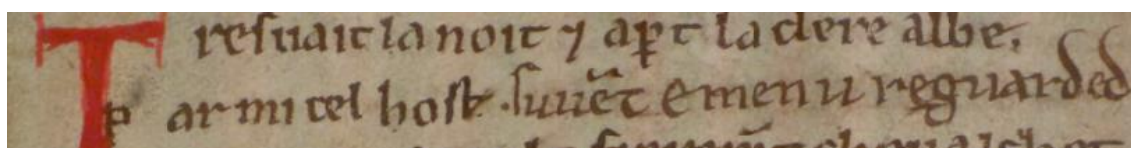 Tresuait la noit ⁊ aꝑt la clere albe.
Par mi cel host. suuēt e menu reguarded